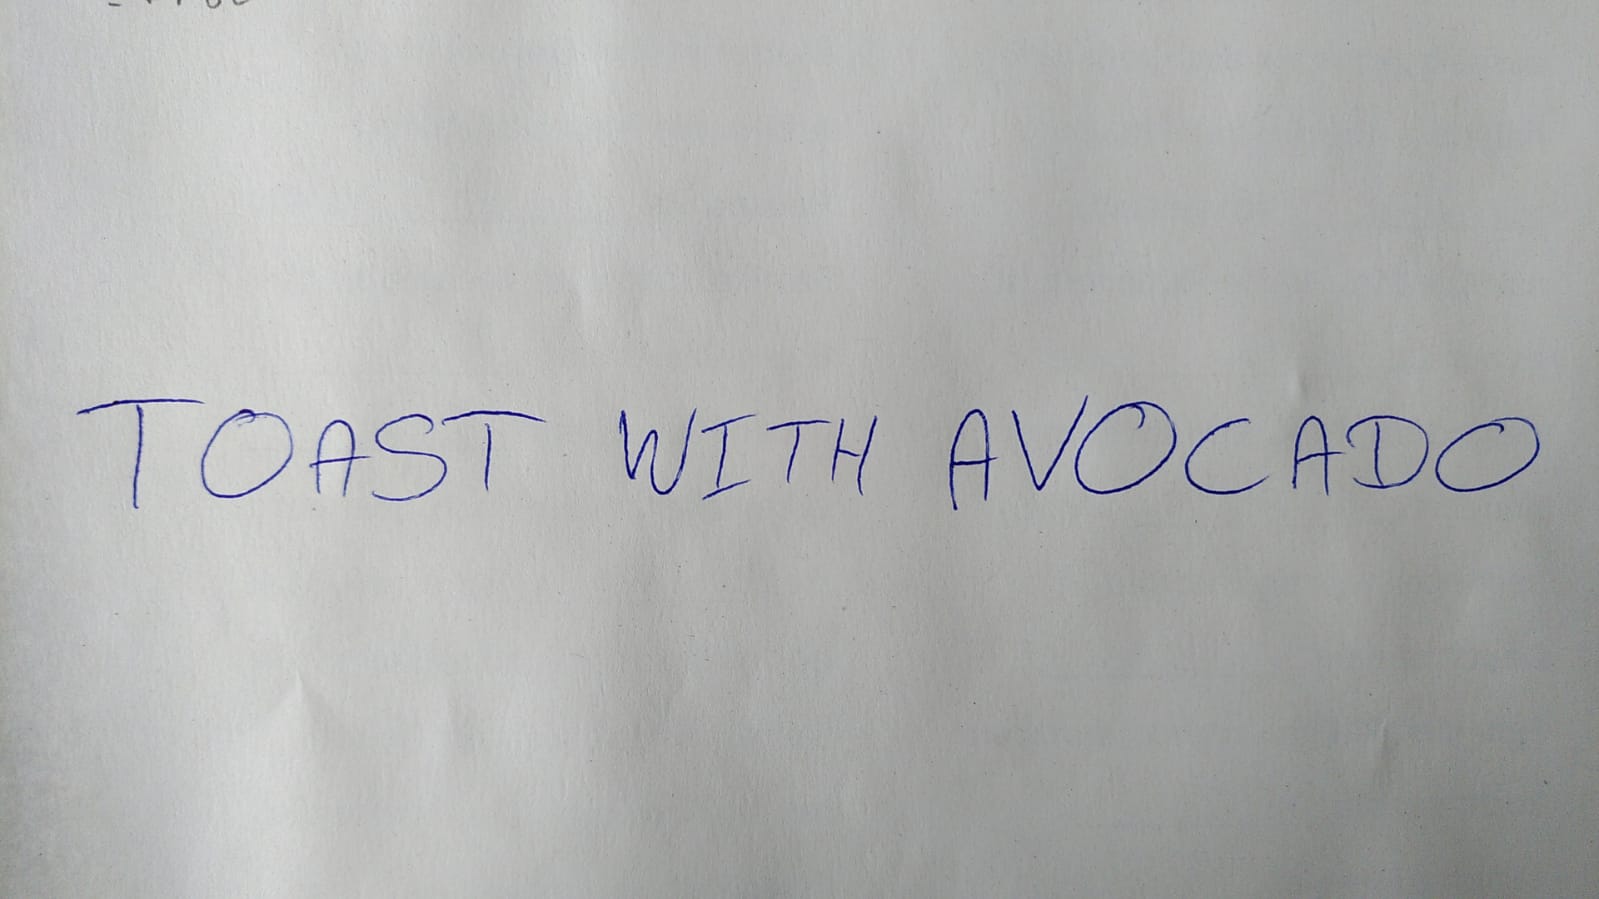 TOAST WITH AVOCADO